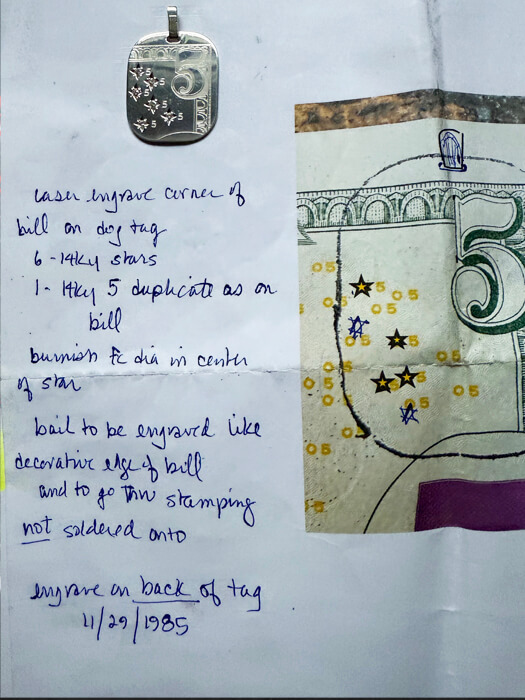 laser engrave corner of
bill on dog tag
6 - 14ky stars
1 - 14ky 5 duplicate as on
bill
burnish fc dia in center
of star
bail to be engraved like
decorative edge of bill
and to go thru stamping
not soldered onto
engrave on back of tag
11/29/1985
5
5
5
5
5
5
5
5
05
05
05
05
05
05
05
05
05